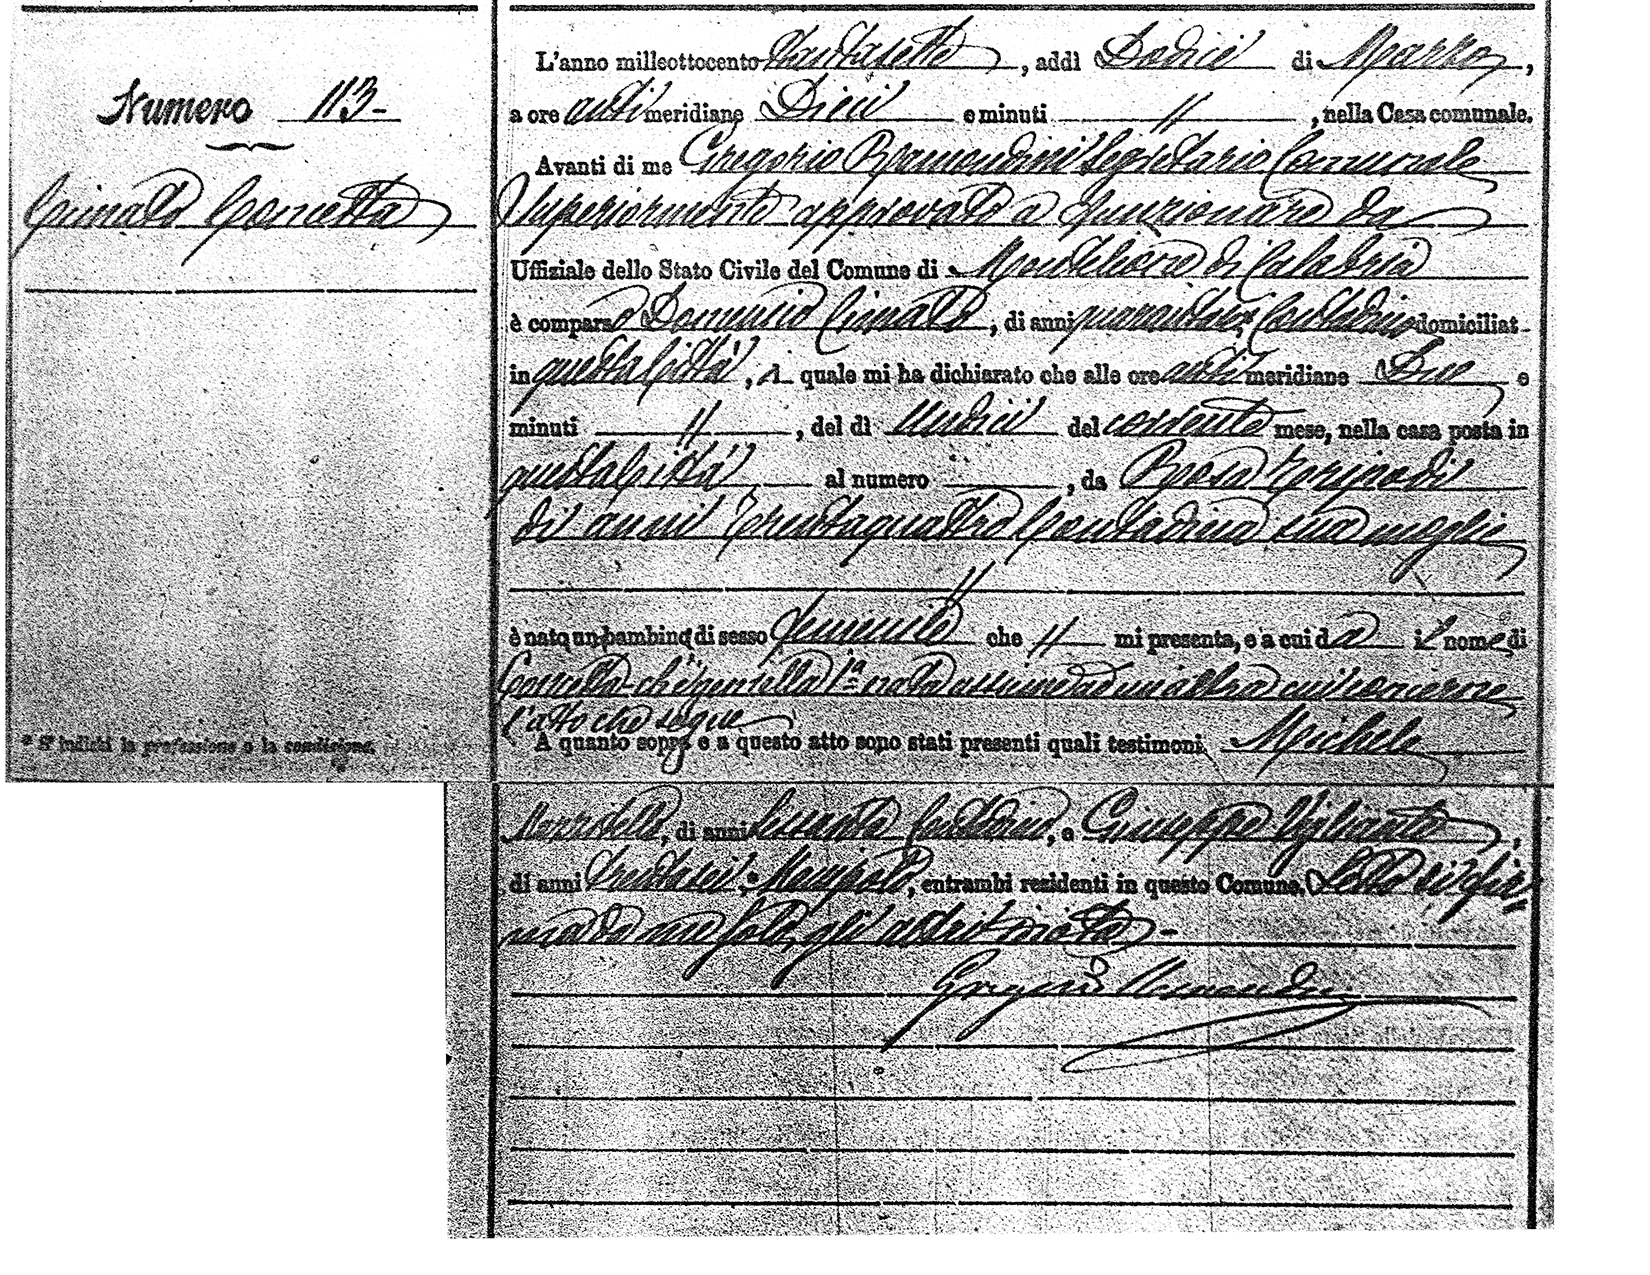 Numero 113-
Cimato Concetta
* Si indichi la professione o la condizione.
L'anno milleottocento, addì Dodici di Marzo,
a ore anti meridiane Dieci e minuti //, nella Casa comunale.
Avanti di me Gregorio Segretario Comunale
Superiormente approvato a funzionare da
Uffiziale dello Stato Civile del Comune di Monteleone di Calabria
è comparso Domenico Cimato, di anni Contadino domiciliat
in questa Città, il quale mi ha dichiarato che alle ore anti meridiane Due e
minuti //, del dì Undici del corrente mese, nella casa posta in
questa Città al numero, da Rosa Tripodi
di anni Trentaquattro Contadina sua moglie
//
è nato un bambino di sesso femminile che // mi presenta, e a cui dà il nome di
Concetta - che gemella 1ª nata ad un'altra cui concerne
l'atto che segue
A quanto sopra e a questo atto sono stati presenti quali testimoni Michele
di anni Contadino, e Giuseppe
di anni Trentasei, entrambi residenti in questo Comune. Letto si fir=
ma da me solo, gli altri